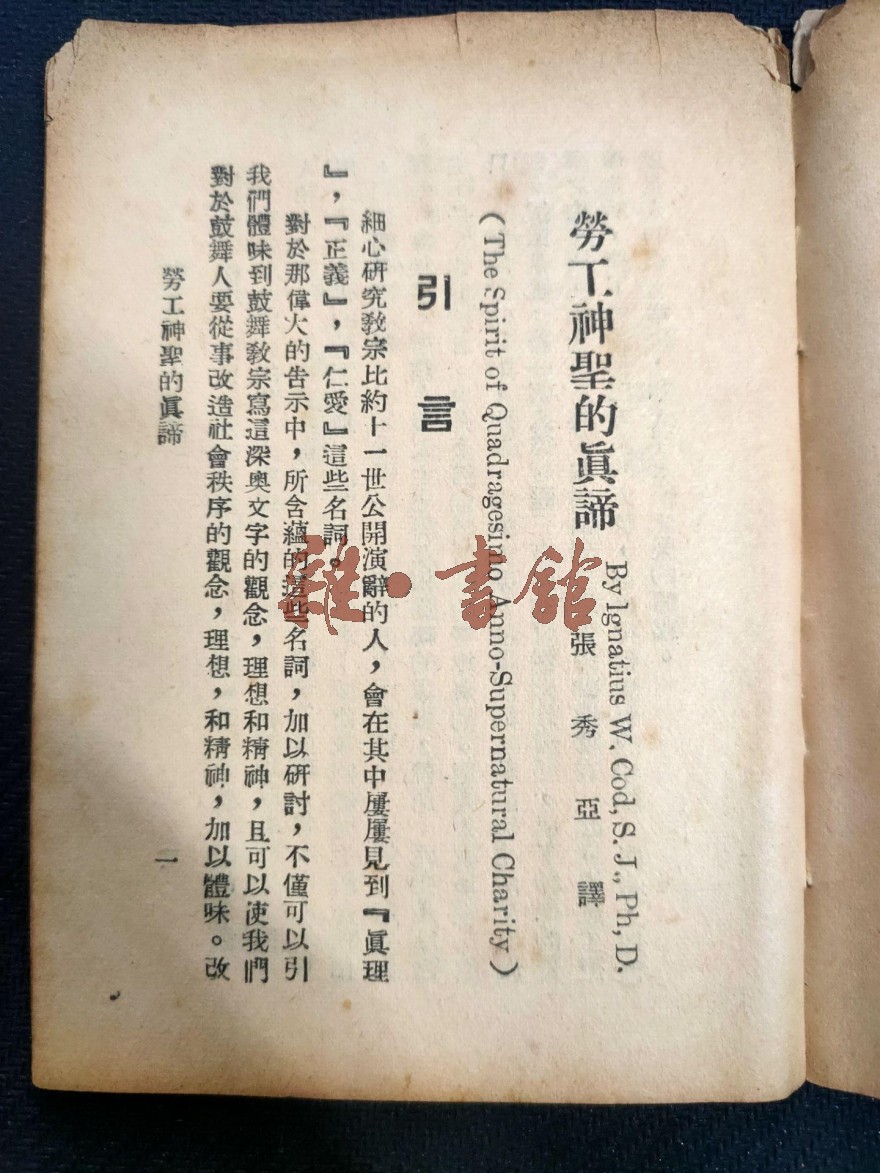 勞工神聖的眞諦
By Ignatius W. Cod, S. J., Ph, D.
張秀亞譯
(The Spirit of Quadragesimo Anno-Supernatural Charity)
引言
細心研究教宗比約十一世公開演辭的人，會在其中屢屢見到『眞理
』，『正義』，『仁愛』這些名詞。
對於那偉大的告示中，所含蘊的這些名詞，加以研討，不僅可以引
我們體味到鼓舞教宗寫這深奧文字的觀念，理想和精神，且可以使我們
對於鼓舞人要從事改造社會秩序的觀念，理想，和精神，加以體味。改
勞工神聖的眞諦
一
雜·書館